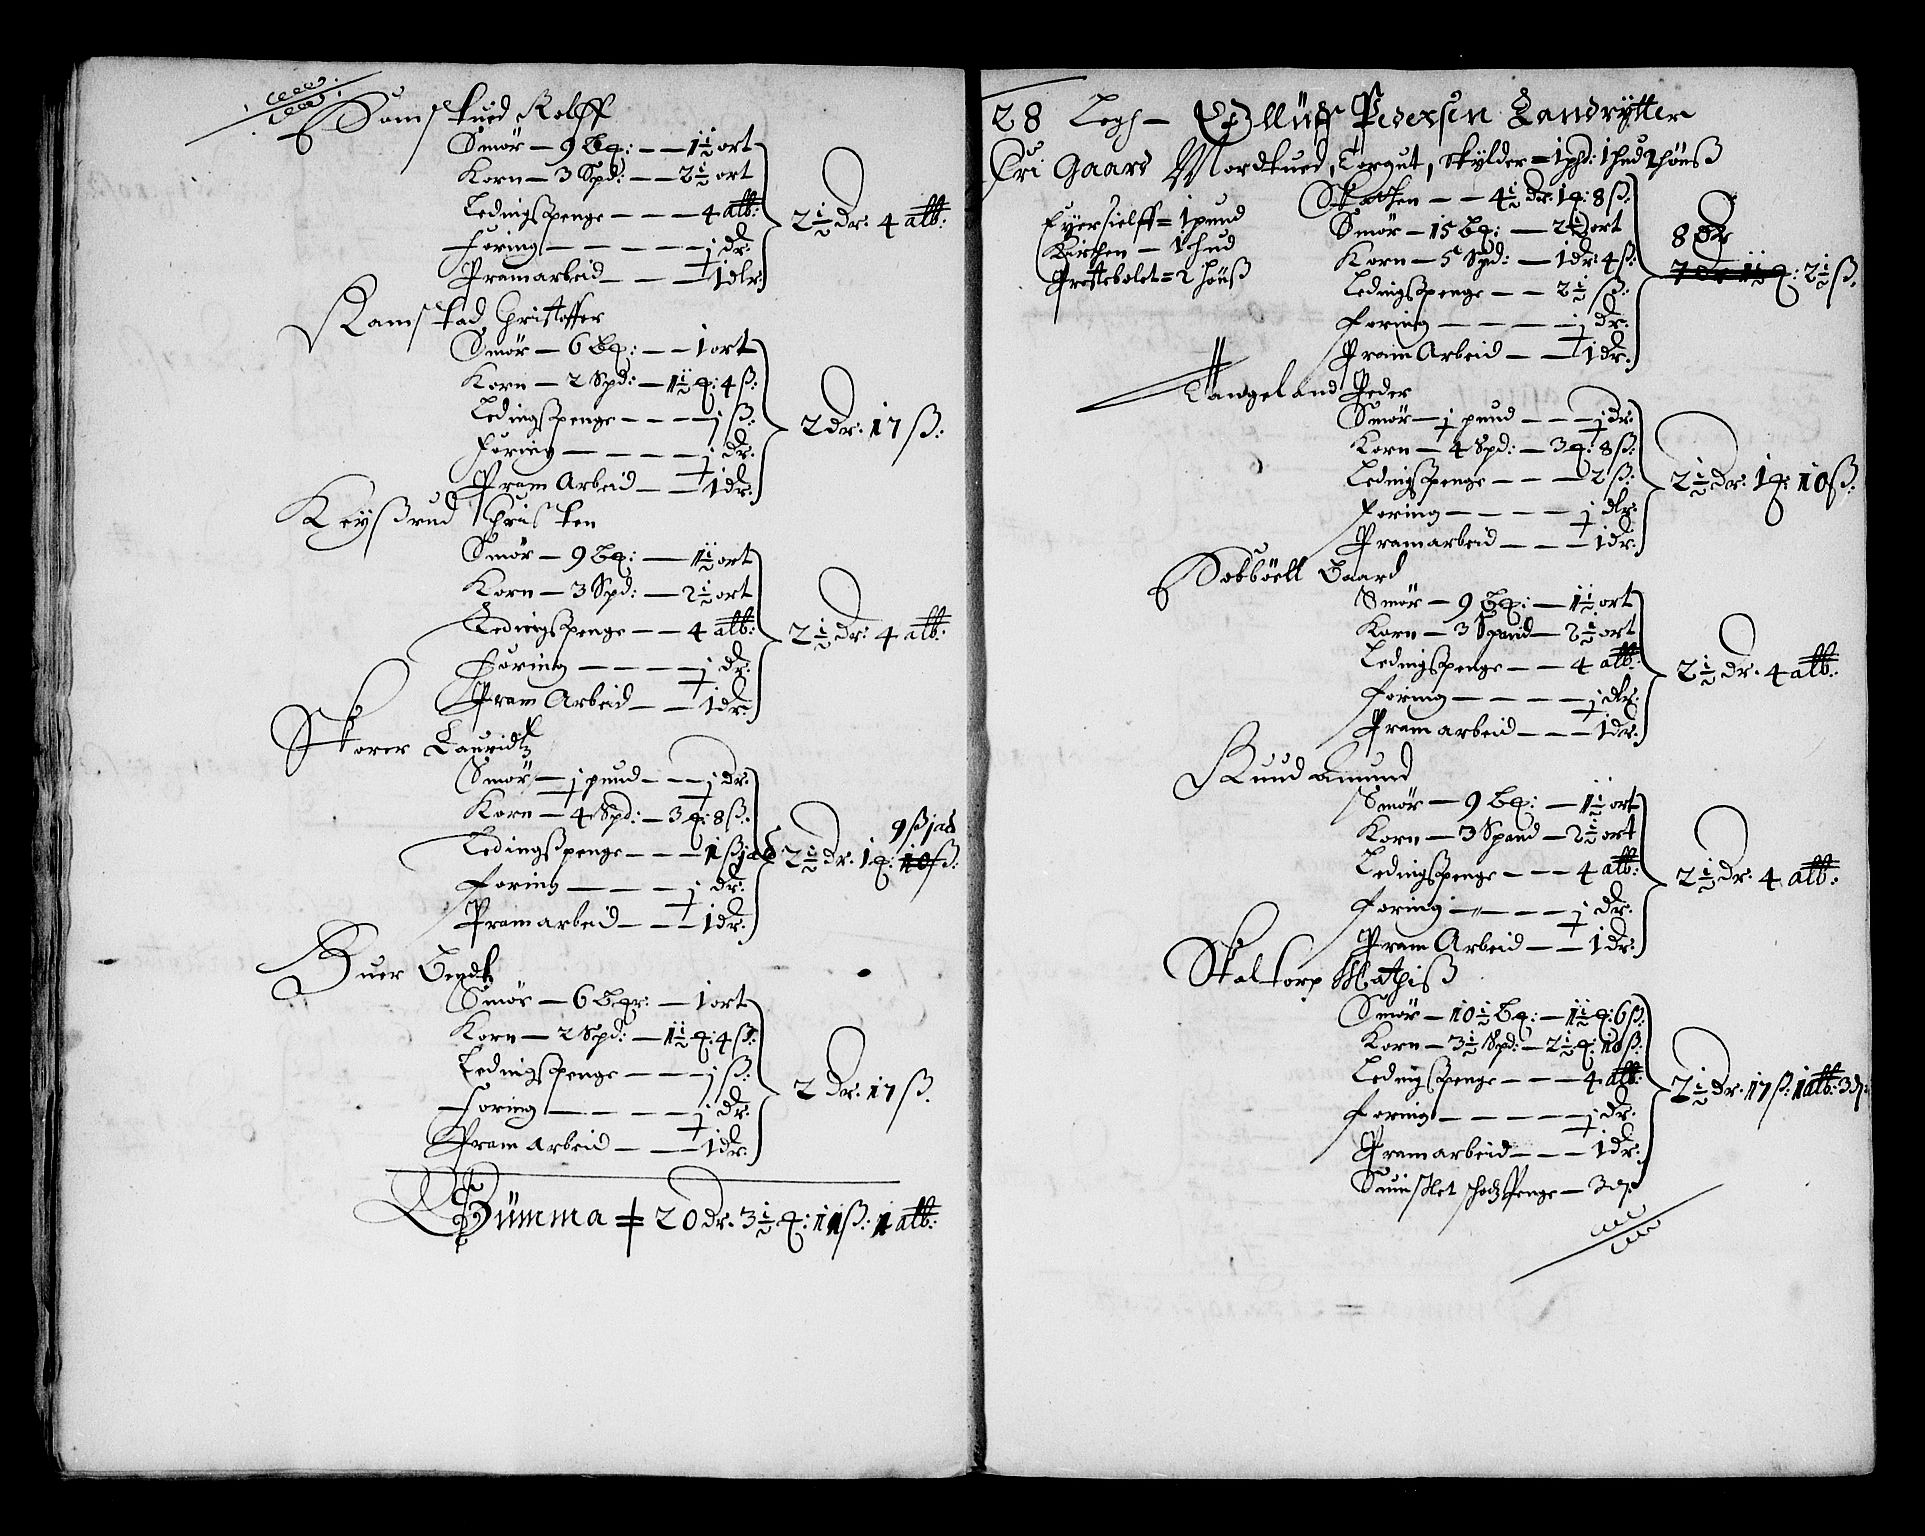 Somstued Rolff
Smør — 9 Bq: — — 1½ ort
Korn — 3 Spd: — — 2½ ort
Ledingsspenge — — — 4 alb:
Foring — — — — — j dr:
Pramarbeid — — — 1 dlr:
2½ dr: 4 alb:
Ramstad Christoffer
Smør — 6 Bq: — — 1 ort
Korn — 2 Spd: — 1½ q: 4 ß:
Ledingsspenge — — — j ß:
Foring — — — — — j dr:
Pram Arbeid — — 1 dr:
2 dr: 17 ß:
Keyßrud Christen
Smør — 9 Bq: — 1½ ort
Korn — 3 Spd: — 2½ ort
Ledingsspenge — — 4 alb:
Foring — — — — j dr:
Pram Arbeid — — 1 dr:
2½ dr: 4 alb:
Skorer Lauridtz
Smør — j pund — — j dr:
Korn — 4 Spd: — 3 q: 8 ß:
Ledingsspenge — — — 1 ßjad
Foring — — — — j dr:
Pramarbeid — — 1 dr:
9 ßjad
2½ dr: 1 q: 10 ß:
Buer Bendt
Smør — 6 Bqr: — 1 ort
Korn — 2 Spd: — 1½ q: 4 ß:
Ledingsspenge — — — j ß:
Foring — — — — j dr:
Pram arbeid — — — 1 dr:
2 dr: 17 ß.
Summa = 20 dr. 3½ q: 11 ß: 1 alb:
28 Legh — Olluff Pedersen Landrytter
Fri Gaard Mordtued, Torgut, skylder = 1 pd: 1 hud 1 hønß
Eyersielff = 1 pund
Kirchen — 1 hud
Prestebolet = 2 hønß
Skatten — — 4½ dr: 1 q: 8 ß:
Smør — 15 Bq: — 2½ ort
Korn — 5 Spd: — 1 dr: 4 ß:
Ledingsspenge — — 2½ ß:
Foring — — — — j dr:
Pram Arbeid — — 1 dr:
8 dr
7 dr 1½ q: 2½ ß:
Tangeland Peder
Smør — j pund — — j dr:
Korn — 4 Spd: — 3 q: 8 ß:
Ledingsspenge — — — 2 ß:
Foring — — — — — j dlr:
Pramarbeid — — — 1 dr:
2½ dr: 1 q: 10 ß:
Dobböell Gaard
Smør — 9 Bq: — 1½ ort
Korn — 3 Spand — 2½ ort
Ledingsspenge — — 4 alb:
Foring — — — — — j dlr:
Pram arbeid — — — 1 dr:
2½ dr. 4 alb:
Ruud Amund
Smør — 9 Bq: — 1½ ort
Korn — 3 Spand — 2½ ort
Ledingsspenge — — — 4 alb:
Foring — — — — j dr.
Pram Arbeid — — 1 dr:
2½ dr. 4 alb:
Skaltorp Mathiß
Smør — 10½ Bq: — 1½ q: 6 ß:
Korn — 3½ Spd: — 2½ q: 10 ß:
Ledingsspenge — — — 4 alb:
Foring — — — — — j dr:
Pramarbeid — — — 1 dr:
penge — 3 d
2½ dr. 17 ß: 1 alb: 3 d: